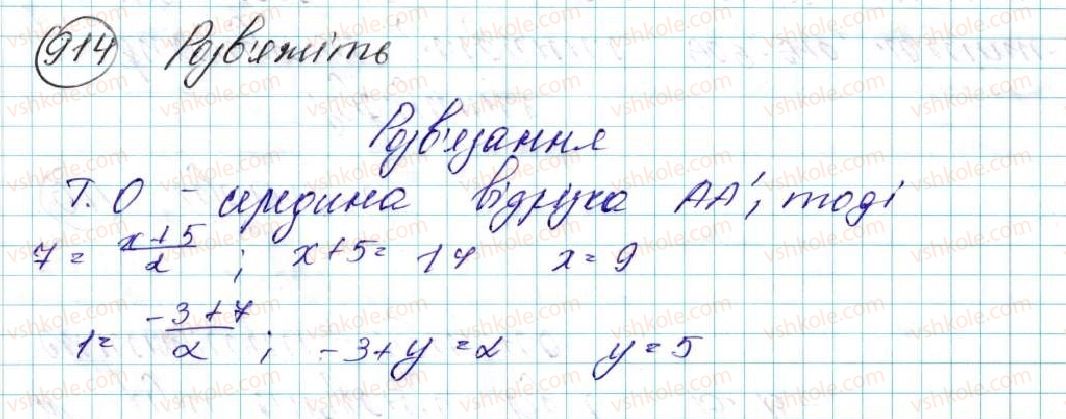 914 Розв'яжіть
Розв'язання
Т. О - середина відрізка АА', тоді
7 = x+5/2 ; x+5= 14 x= 9
1= -3+7/2 ; -3+y=2 y=5